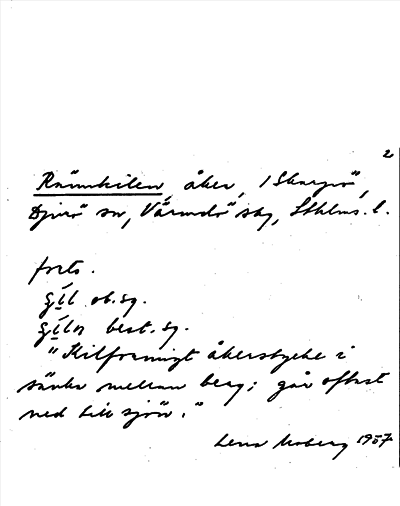 2
Rännkilen, åker, 1 Skarpö,
Djurö sn, Värmdö skg, Sthlms. l.
forts.
ob. sg.
best. sg.
"Kilformigt åkerstycke i
sänka mellan berg; går oftast
ned till sjön."
Lena Moberg 1957